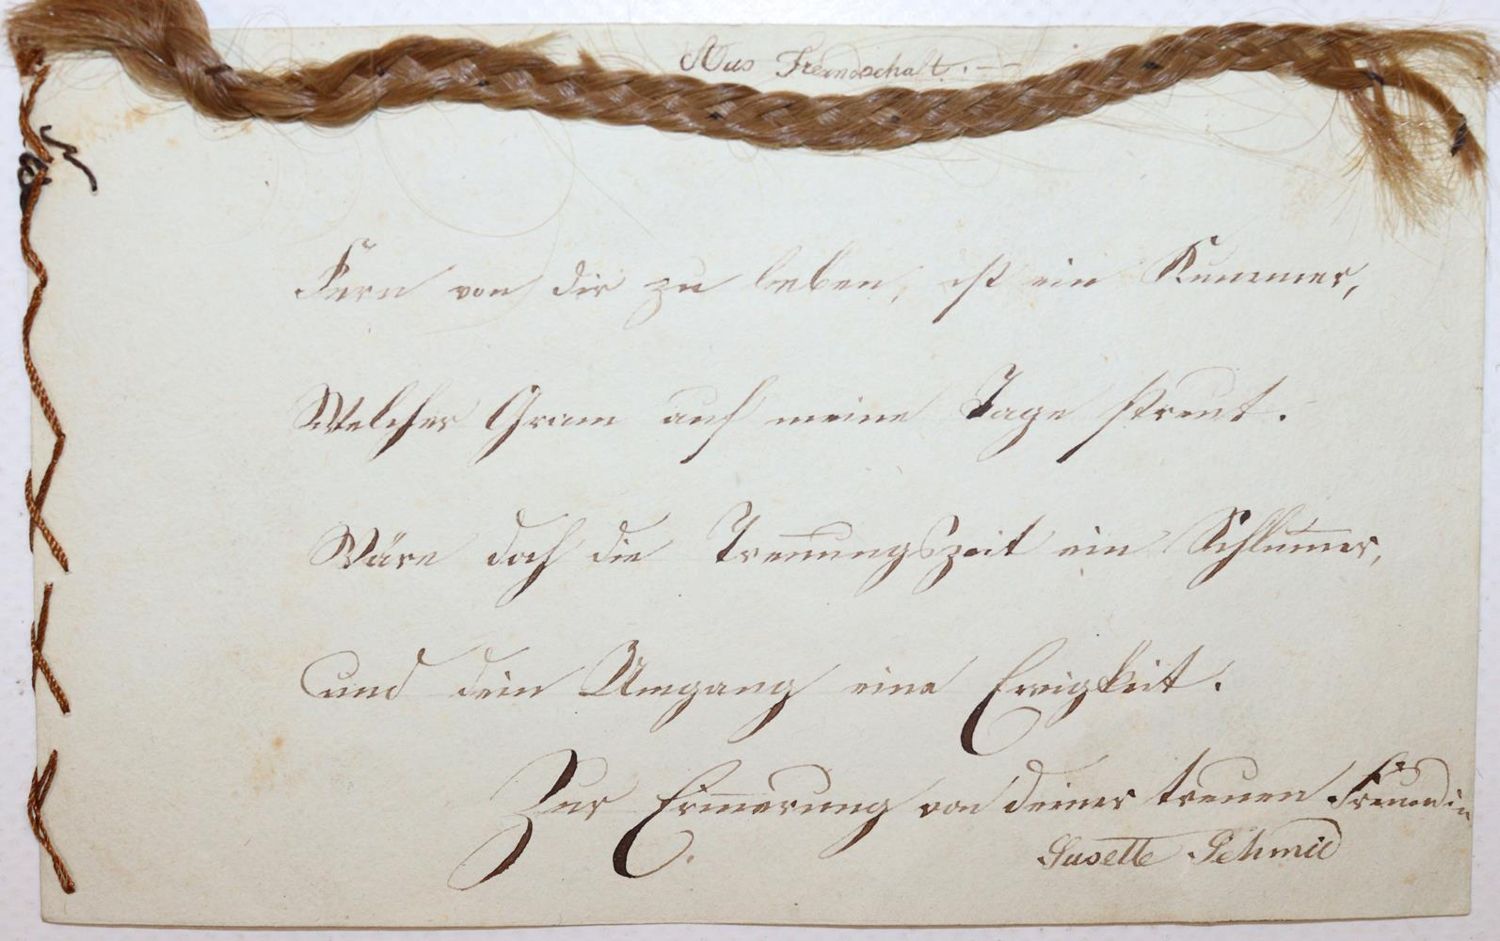 Aus Freundschaft. —
Fern von dir zu leben, ist ein Kummer,
Welcher Gram auf meine Tage streut.
Wäre doch die Trennungszeit ein Schlum̅er,
und dein Umgang eine Ewigkeit.
Zur Erin̅erung von deiner treuen Freundin
Susette Schmid